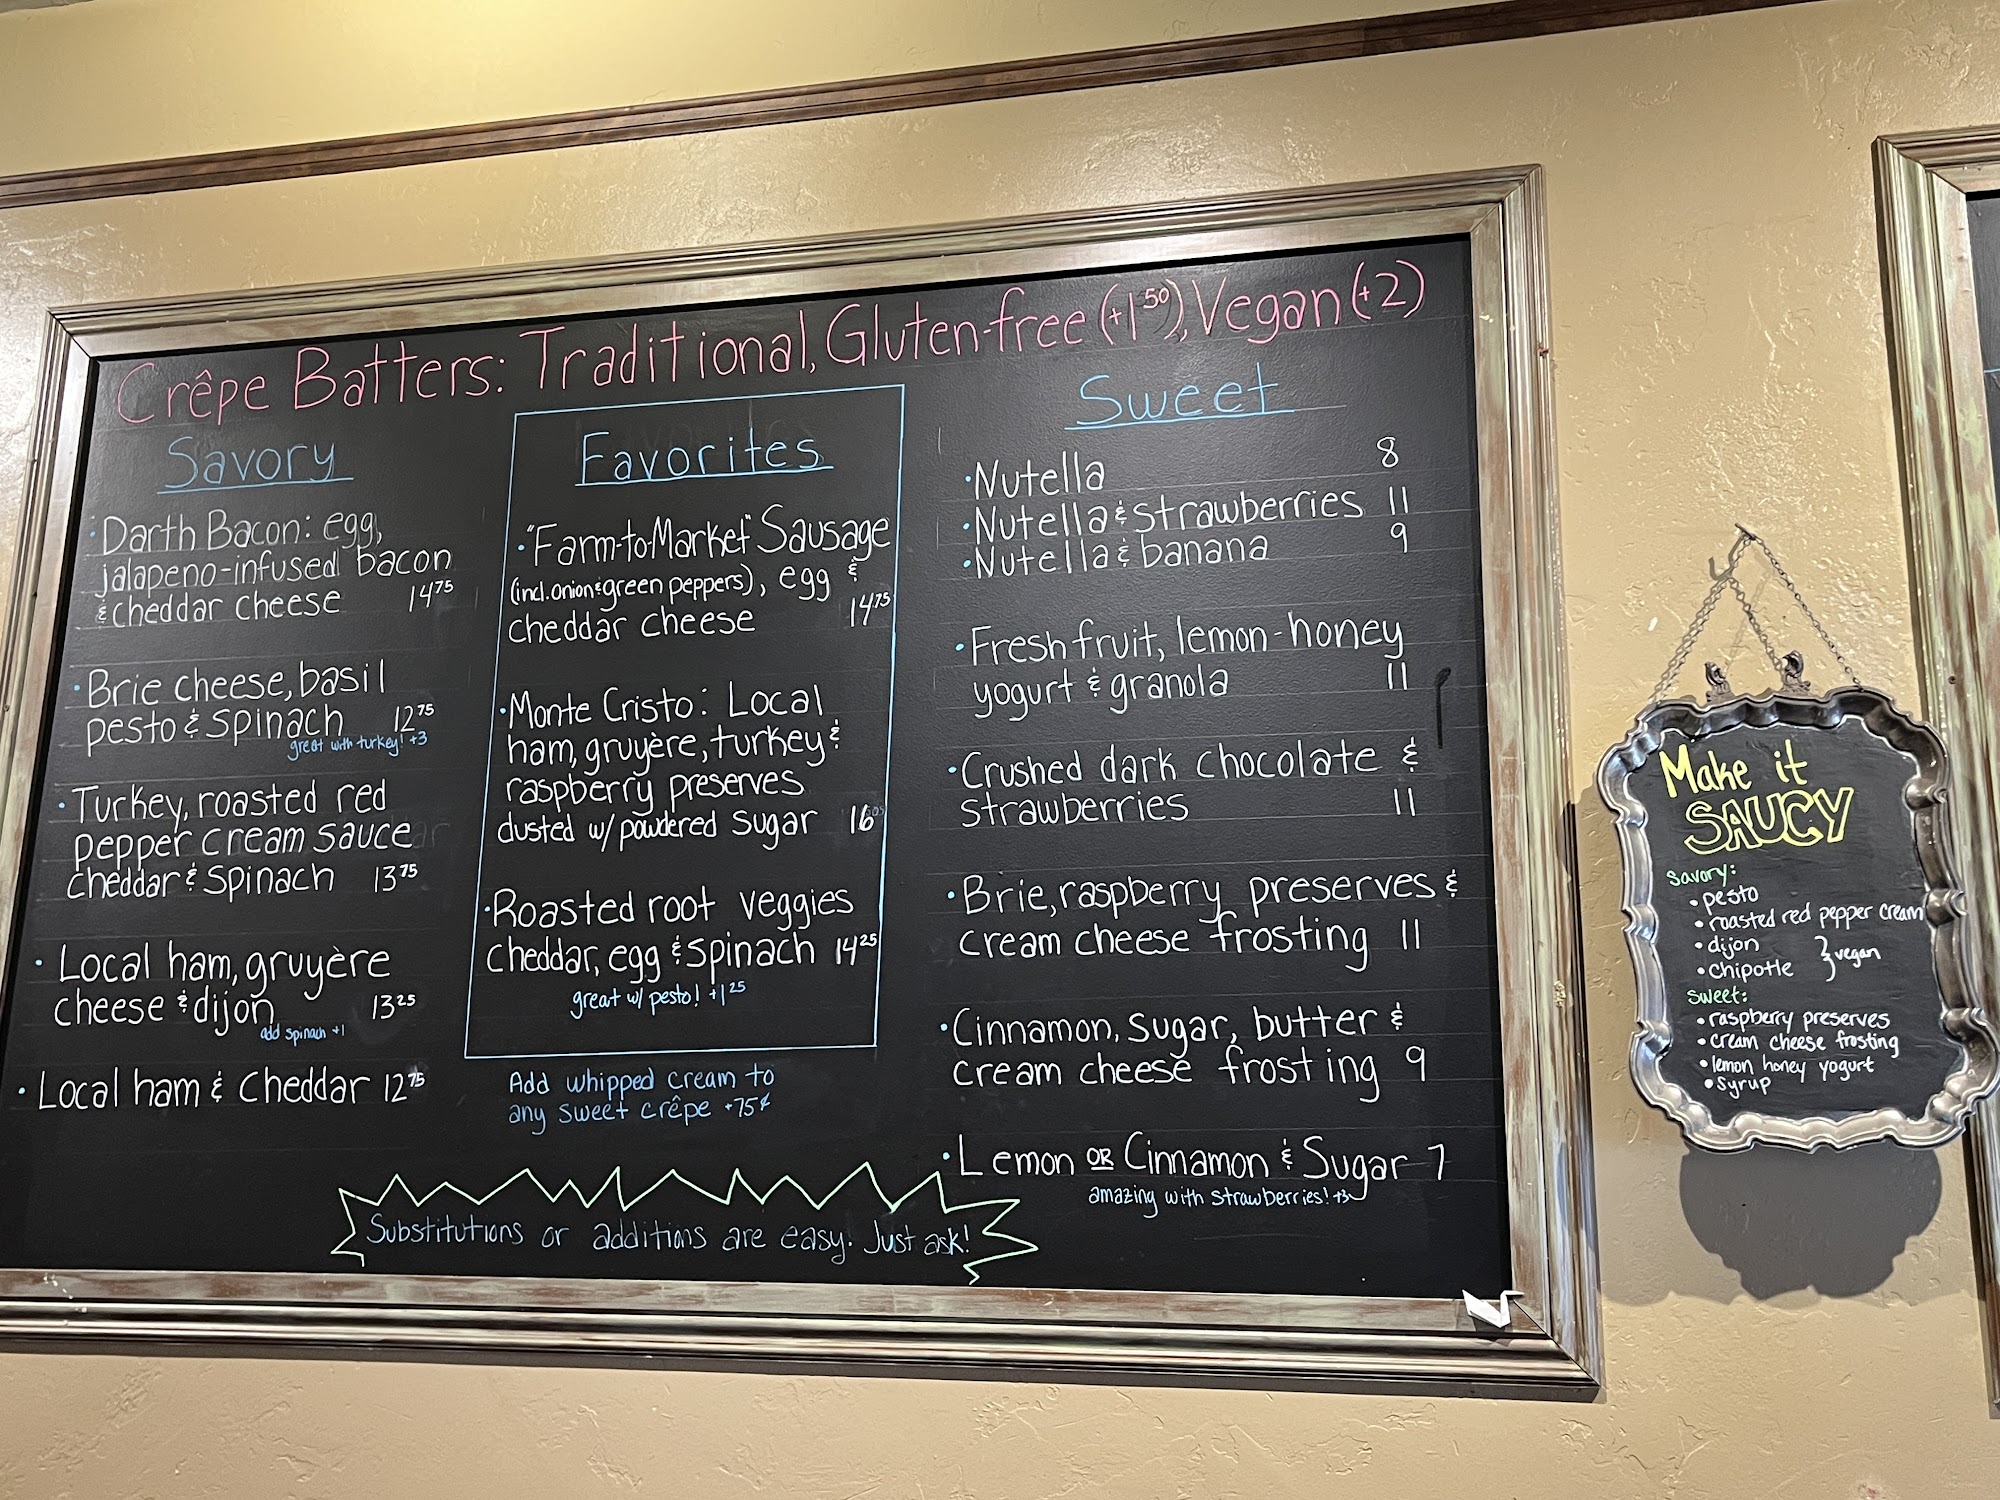 Crêpe Batters: Traditional, Gluten-free (+1⁵⁰), Vegan (+2)
Savory
• Darth Bacon: egg,
jalapeno-infused bacon
& cheddar cheese 14⁷⁵
• Brie cheese, basil
pesto & spinach 12⁷⁵
great with turkey! +3
• Turkey, roasted red
pepper cream sauce
cheddar & spinach 13⁷⁵
• Local ham, gruyère
cheese & dijon 13²⁵
add spinach +1
• Local ham & cheddar 12⁷⁵
Favorites
• "Farm-to-Market" Sausage
(incl. onion & green peppers), egg &
cheddar cheese 14⁷⁵
• Monte Cristo: Local
ham, gruyère, turkey &
raspberry preserves
dusted w/ powdered sugar 16
• Roasted root veggies
cheddar, egg & spinach 14²⁵
great w/ pesto! +1²⁵
Add whipped cream to
any sweet crêpe +75¢
Sweet
• Nutella 8
• Nutella & strawberries 11
• Nutella & banana 9
• Fresh fruit, lemon-honey
yogurt & granola 11
• Crushed dark chocolate &
strawberries 11
• Brie, raspberry preserves &
cream cheese frosting 11
• Cinnamon, sugar, butter &
cream cheese frosting 9
• Lemon OR Cinnamon & Sugar 7
amazing with strawberries! +3
Substitutions or additions are easy. Just ask!
Make it
SAUCY
savory:
• pesto
• roasted red pepper cream
• dijon
• chipotle } vegan
sweet:
• raspberry preserves
• cream cheese frosting
• lemon honey yogurt
• syrup